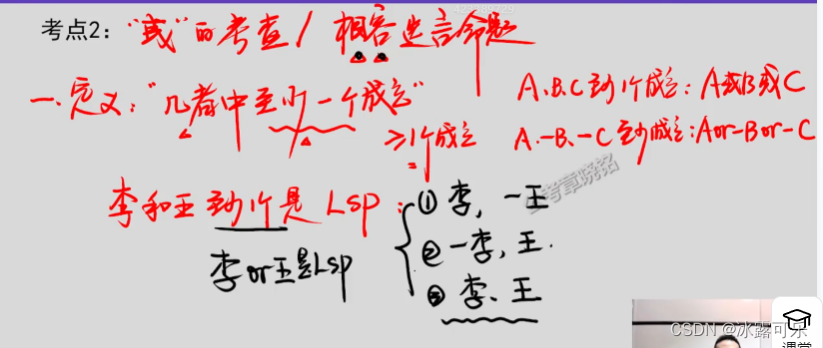 考点2："或"的考查/相容选言命题
一、定义："几者中至少一个成立"
≥1个成立
A、B、C至少1个成立：A或B或C
A、-B、-C至少1成立：A or -B or -C
李和王至少1个是Lsp：
李or王是Lsp
①李，-王
②-李，王.
③李、王
考章晓铭
CSDN @冰露可乐
课堂